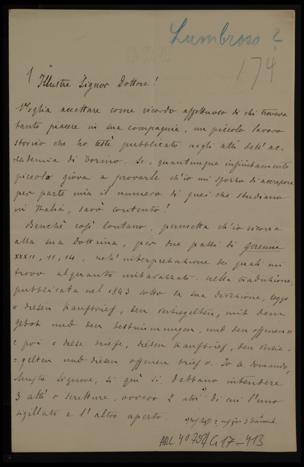 Lumbroso 2
174
Illustre Signor Dottore!
Voglia accettare come ricordo affettuoso di chi trovava
tanto piacere in sua compagnia, un piccolo lavoro
storico che ho testè pubblicato negli atti dell'ac-
cademia di Torino. Se, quantunque infinitamente
piccolo giova a provarle ch'io mi sforzo di accrescere
per parte mia il numero di quei che studiano
in Italia, sarò contento!
Benchè così lontano, permetta ch'io ricorra
alla sua dottrina, per due passi di Geremia
XXXII, 11, 14, nell' interpretazione dei quali mi
trovo alquanto imbarazzato. nella traduzione
pubblicata nel 1843 sotto la sua direzione, leggo
diesen Kaufbrief, den versiegelten, mit dem
Gebot und den Bestimmungen, und den offenen
e poi diese Briefe, diesen Kaufbrief, den versie-
gelten und diesen offenen Brief. Io le domando,
Signore, se qui si debbano intendere
3 atti o scritture, ovvero 2 atti di cui l'uno
sigillato e l'altro aperto.
ARC 4° 792/G17-413